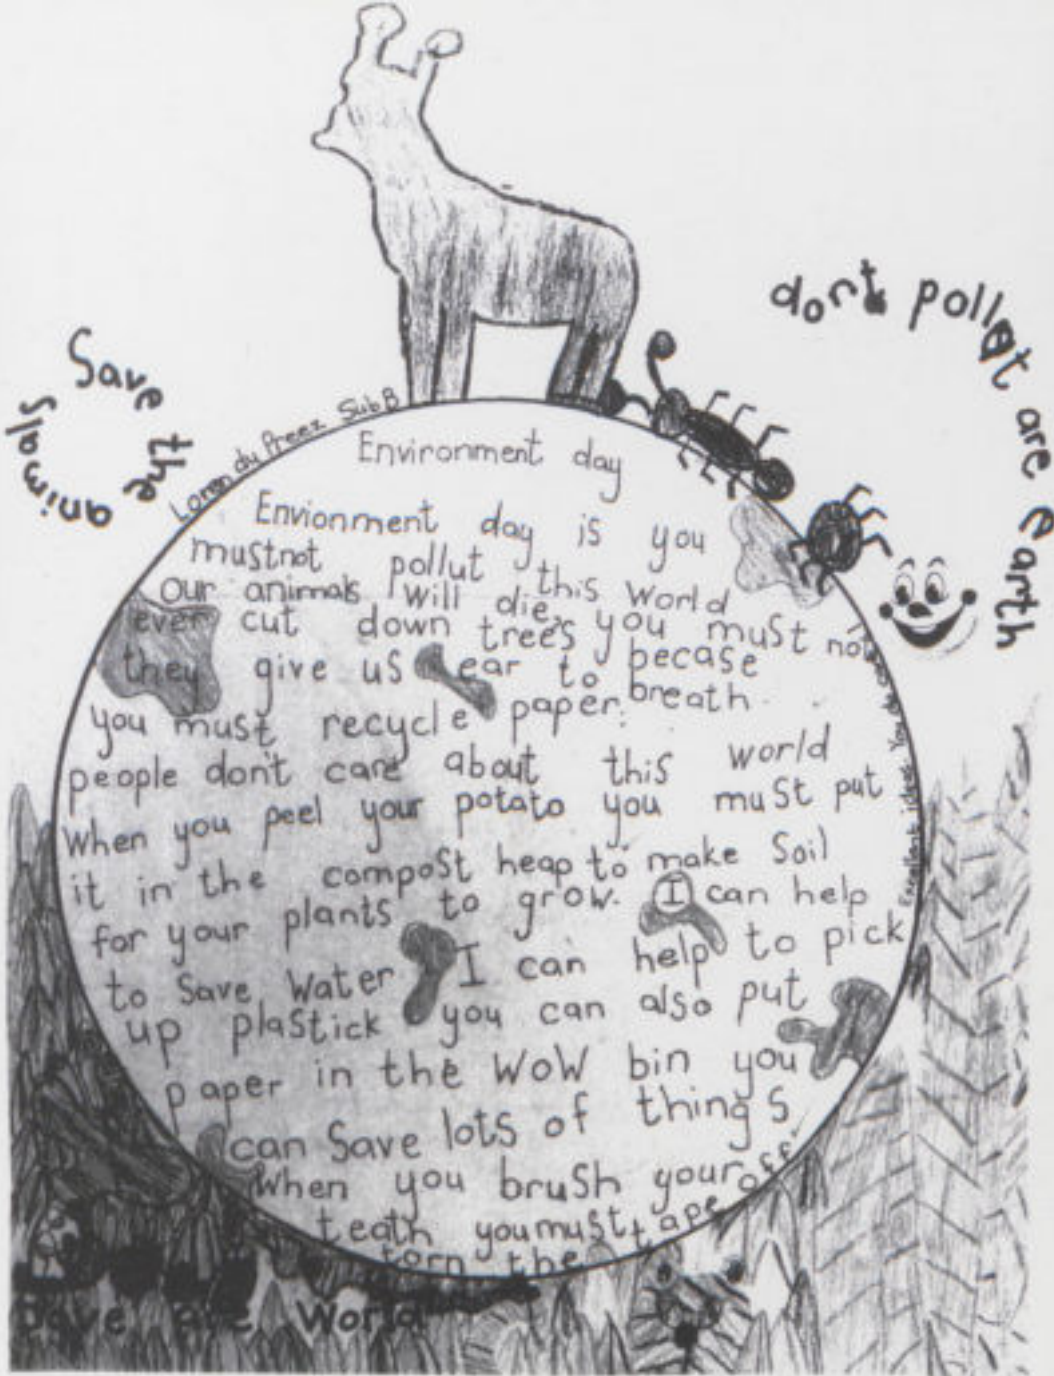 Save the animals
dont pollut are earth
Loren du Preez Sub B
Environment day
Envionment day is you
mustnot pollut this World
our animals will die, you must not
ever cut down trees becase
they give us ear to breath.
you must recycle paper.
people don't care about this world
When you peel your potato you must put
it in the compost heap to make Soil
for your plants to grow. I can help
to Save Water I can help to pick
up plastick you can also put
paper in the WOW bin you
can Save lots of things
When you brush your off.
teath you must tape
torn the
Excellent ideas. You do
Save are World